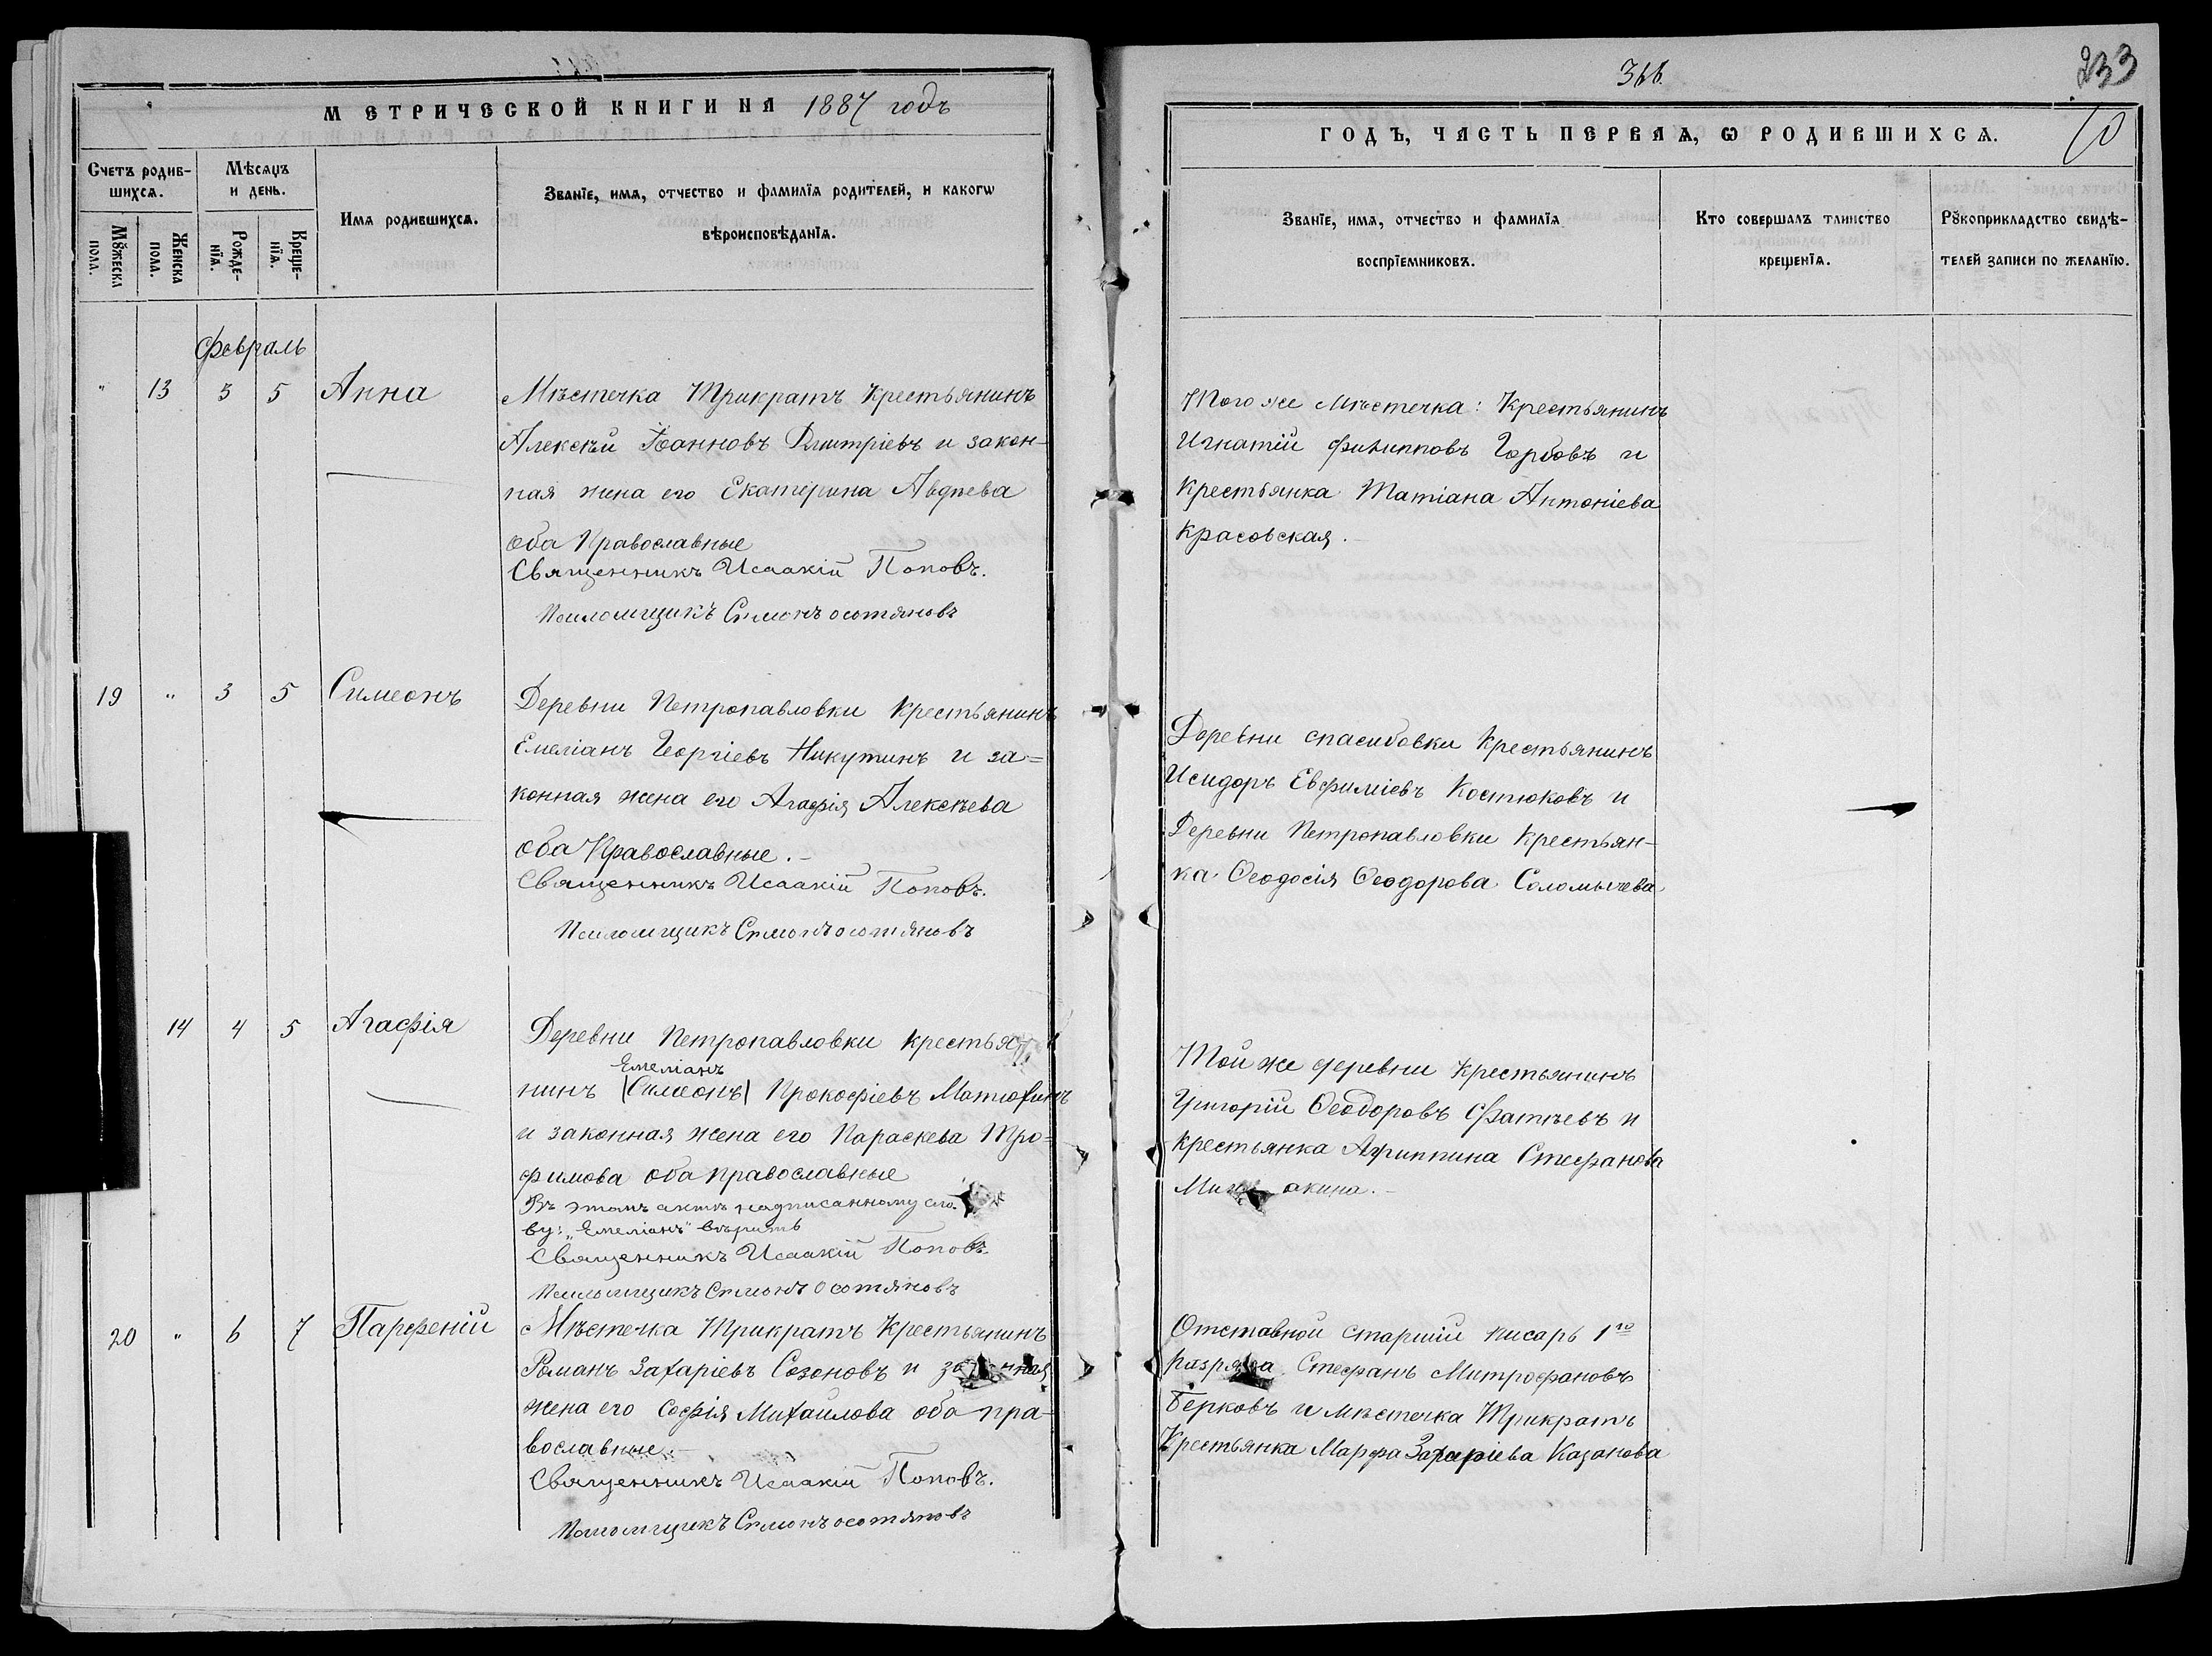 МЕТРИЧЕСКОЙ КНИГИ НА 1887 годъ
Счетъ родив-
шихся.
Мѣсяцъ
и день.
Мужеска
пола.
Женска
пола.
Рожде-
нія.
Креще-
нія.
Имя родившихся.
Званіе, имя, отчество и фамилія родителей, и какогѡ
вѣроисповѣданія.
Февраль
" 13 3 5 Анна
Мѣстечка Трикратъ Крестьянинъ
Алексѣй Іоанновъ Дмитріевъ и закон-
ная жена его Екатерина Авдѣева
оба Православные
Священникъ Исаакій Поповъ.
Псаломщикъ Симонъ Осотяновъ
19 " 3 5 Симеонъ
Деревни Петропавловки Крестьянинъ
Емеліанъ Георгіевъ Никутинъ и за=
конная жена его Агафія Алексѣева
оба Православные.-
Священникъ Исаакій Поповъ.
Псаломщикъ Симонъ Осотяновъ
14 4 5 Агафія
Деревни Петропавловки крестья
Емеліанъ
нинъ (Симеонъ) Прокофіевъ Матюхинъ
и законная жена его Параскева Тро=
фимова оба православные
Въ этомъ актѣ надписанному сло-
ву: „Емеліанъ" вѣрить
Священникъ Исаакій Поповъ.
Псаломщикъ Симонъ Осотяновъ
20 " 6 7 Парфеній
Мѣстечка Трикратъ Крестьянинъ
Романъ Захаріевъ Созоновъ и
жена его Софія Михаилова оба пра-
вославные.-
Священникъ Исаакій Поповъ.
Псаломщикъ Симонъ Осотяновъ
366.
233
10
ГОДЪ, ЧАСТЬ ПЕРВАЯ, Ѡ РОДИВШИХСЯ.
Званіе, имя, отчество и фамилія
воспріемниковъ.
Кто совершалъ таинство
крещенія.
Рукоприкладство свидѣ-
телей записи по желанію.
Того же Мѣстечка: Крестьянинъ
Игнатій Филипповъ Горбовъ и
Крестьянка Татіана Антоніева
Красовская.-
Деревни Спасибовки Крестьянинъ
Исидоръ Евфиміевъ Костюковъ и
Деревни Петропавловки Крестьян-
ка Ѳеодосія Ѳеодорова Соломычева.
Той же деревни Крестьянинъ
Григорій Ѳеодоровъ Фатѣевъ и
крестьянка Агриппина Стефанова
Отставной старшій писарь 1го
разряда Стефанъ Митрофановъ
Берковъ и мѣстечка Трикратъ
Крестьянка Марфа Захаріева Казакова